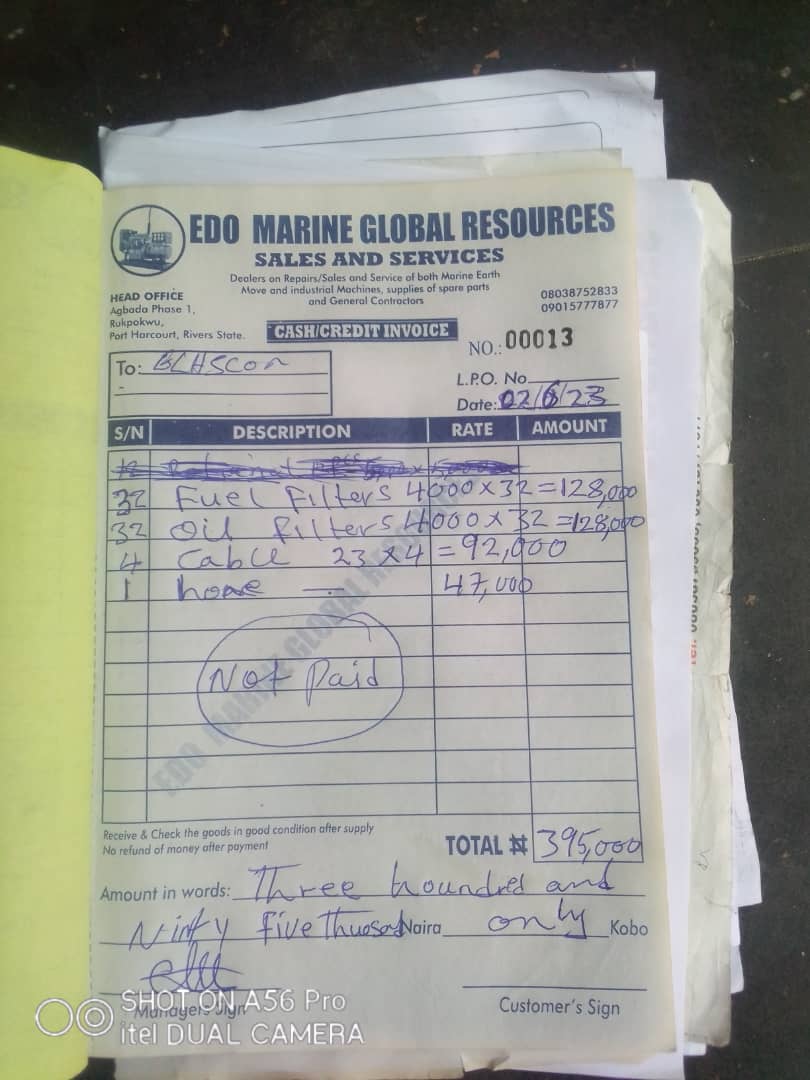 EDO MARINE GLOBAL RESOURCES
SALES AND SERVICES
Dealers on Repairs/Sales and Service of both Marine Earth
Move and industrial Machines, supplies of spare parts
and General Contractors
HEAD OFFICE
Agbada Phase 1,
Rukpokwu,
Port Harcourt, Rivers State.
08038752833
09015777877
CASH/CREDIT INVOICE
NO.: 00013
To:
L.P.O. No
Date: 02/6/23
S/N DESCRIPTION RATE AMOUNT
32 Fuel Filters 4000 x 32 = 128,000
32 Oil filters 4000 x 32 = 128,000
4 Cable 23 x 4 = 92,000
1 47,000
Not Paid
EDO MARINE GLOBAL RESOURCES
Receive & Check the goods in good condition after supply
No refund of money after payment
TOTAL ₦ 395,000
Amount in words: Three houndred and
Ninty five Naira only Kobo
Managers Sign
Customer's Sign
SHOT ON A56 Pro
itel DUAL CAMERA